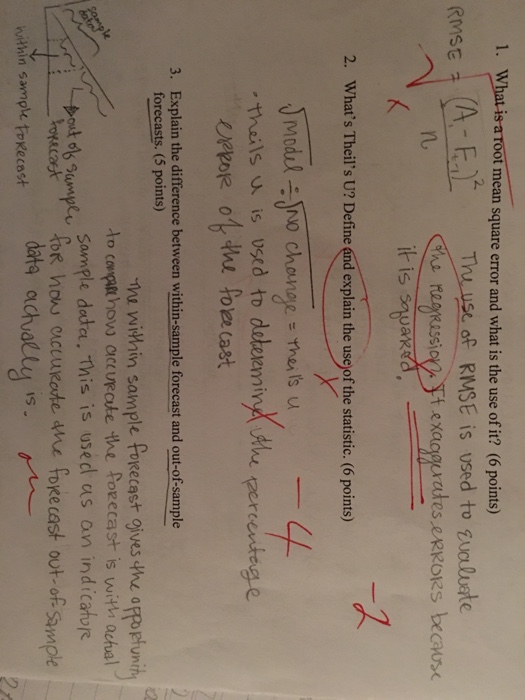 1. What is a root mean square error and what is the use of it? (6 points)
RMSE = (At - Ft-1)²
n
The use of RMSE is used to evaluate
the regression. It exaggerates errors because
it is squared.
-2
2. What's Theil's U? Define and explain the use of the statistic. (6 points)
√Model ÷ √No change = Theil's U
- Theils U is used to determine the percentage
error of the forecast
-4
3. Explain the difference between within-sample forecast and out-of-sample
forecasts. (5 points)
The within sample forecast gives the opportunity
to compare how accurate the forecast is with actual
sample data. This is used as an indicator
for how accurate the forecast out-of-sample
data actually is.
sample
data
out of sample
forecast
within sample forecast